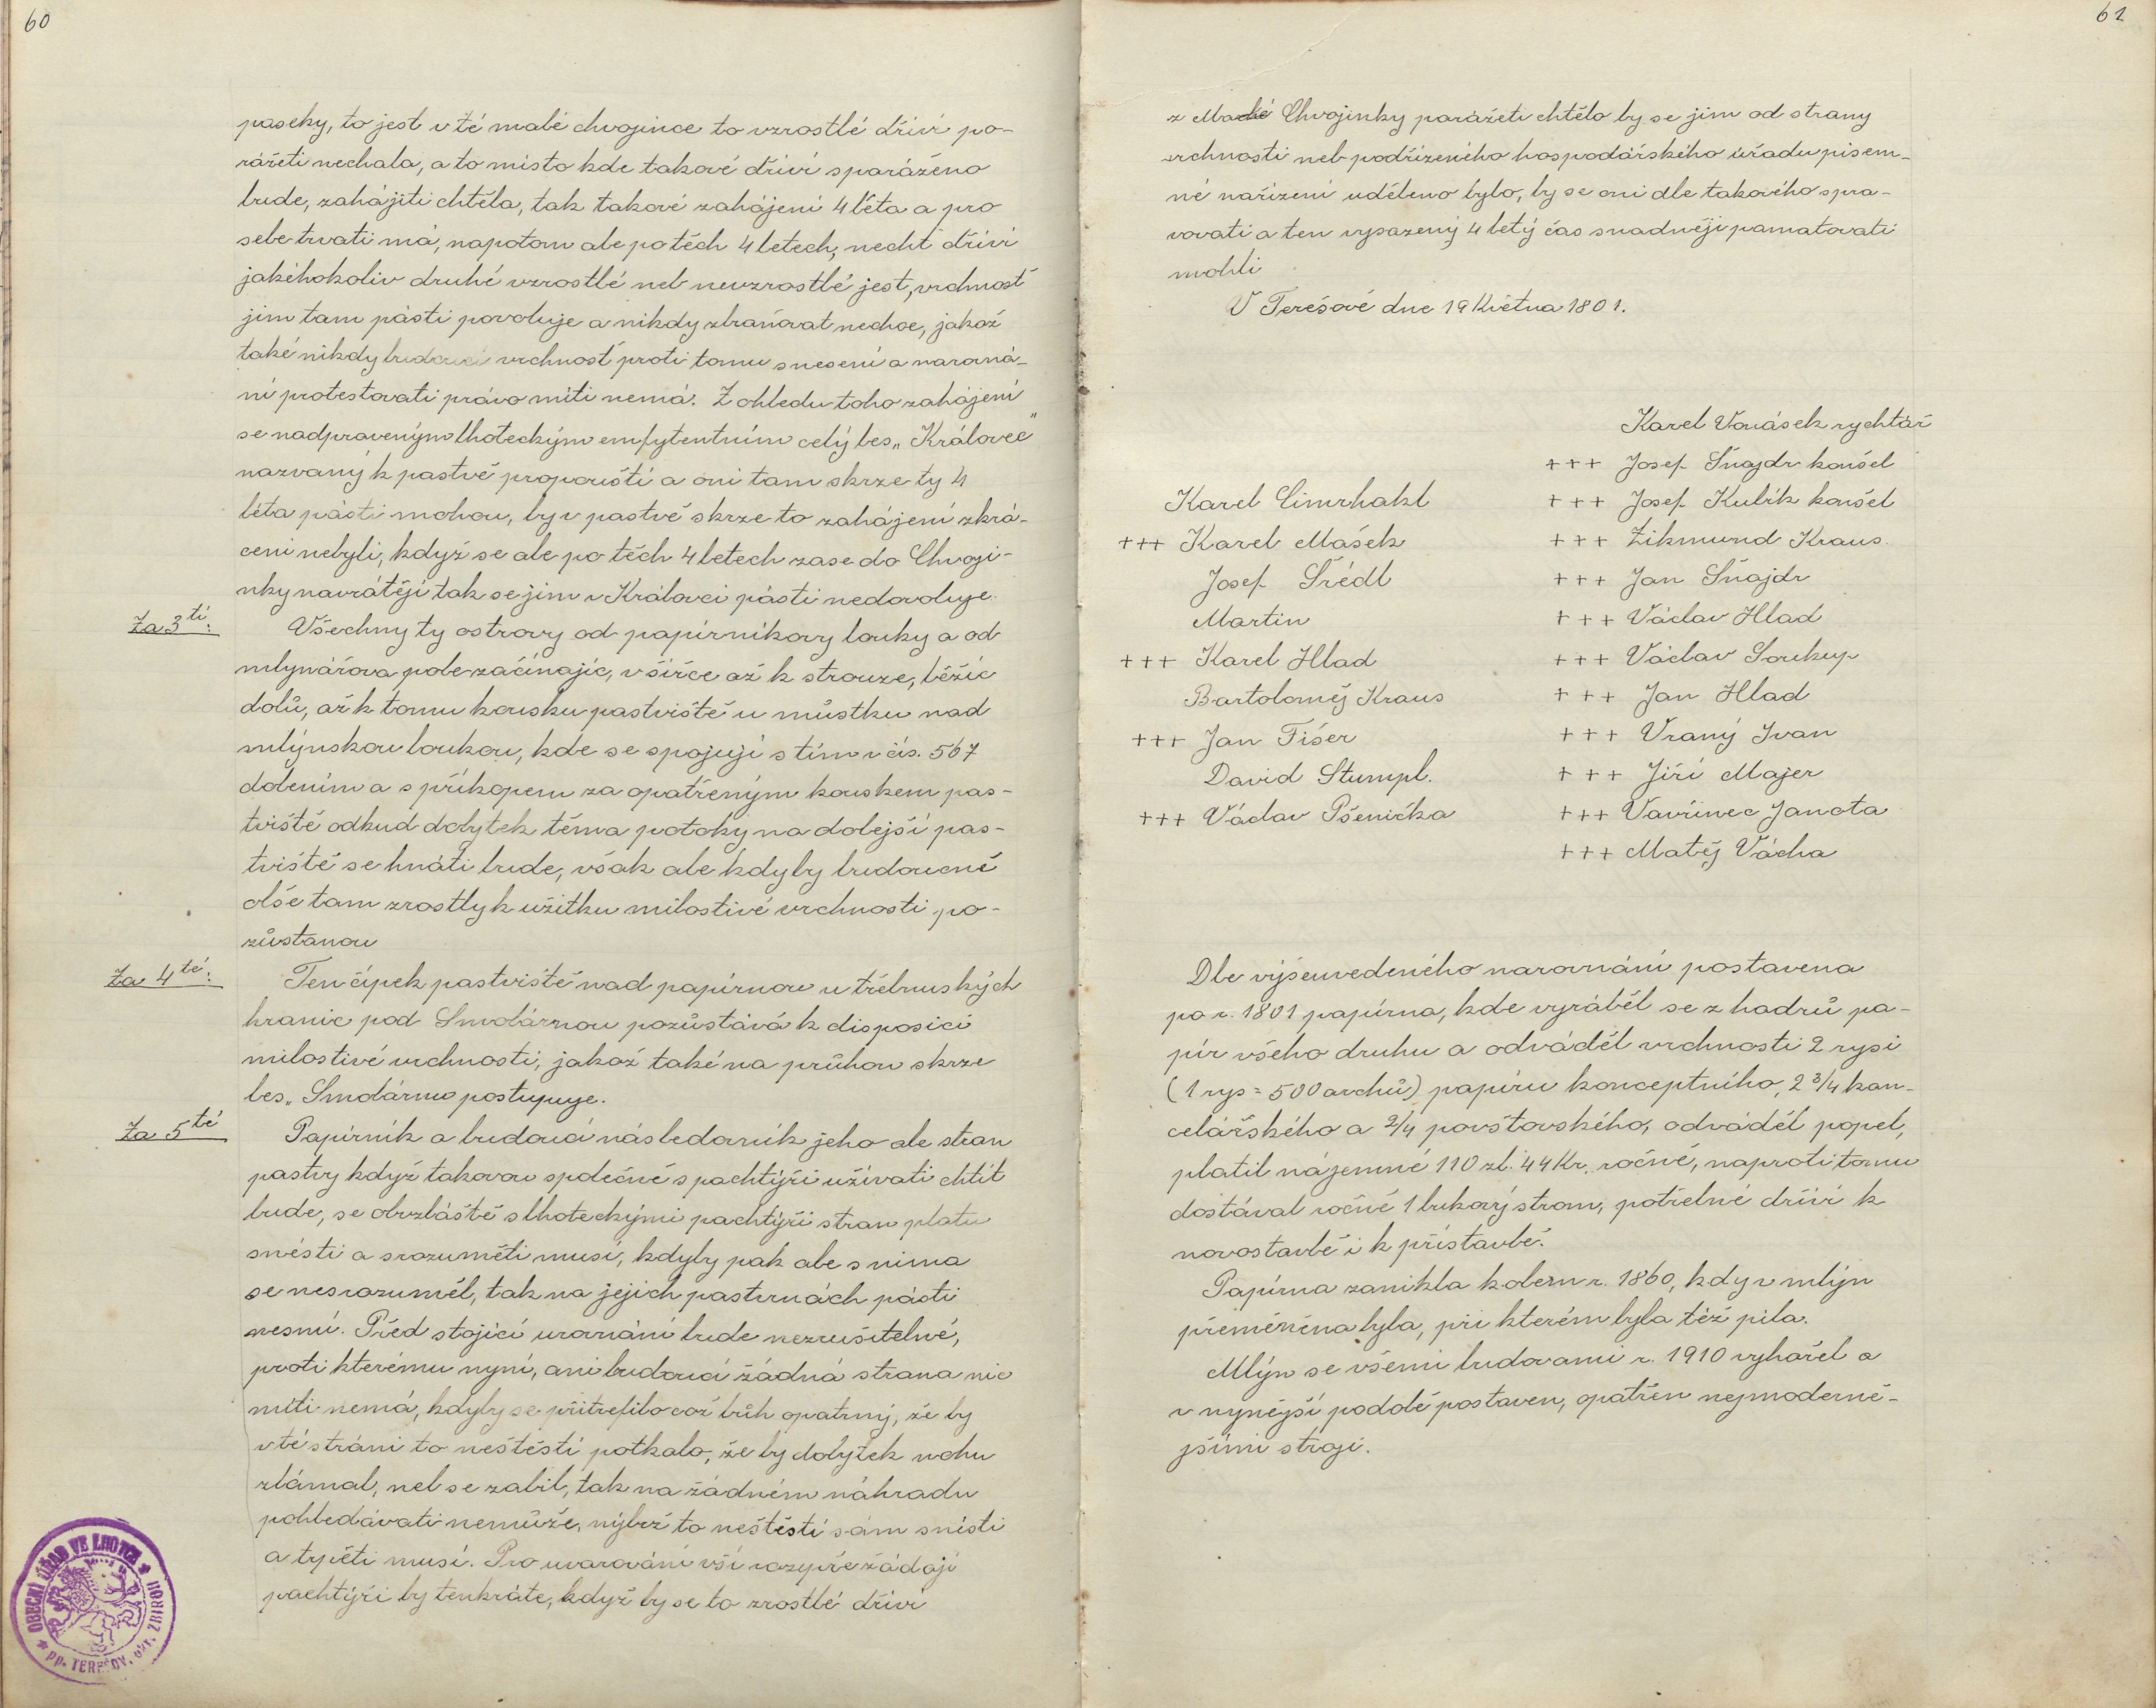 60
paseky, to jest v té malé chvojince to vzrostlé dříví po-
rážeti nechala, a to místo kde takové dříví sparáženo
bude, zahájiti chtěla, tak takové zahájení 4 léta a pro
sebe trvati má, napotom ale po těch 4 letech, nechť dříví
jakéhokoliv druhé vzrostlé neb nevzrostlé jest, vrchnosť
jim tam pásti povoluje a nikdy zbraňovat nechce, jakož
také nikdy budoucí vrchnosť proti tomu snesení a narovná-
ní protestovati právo míti nemá. Z ohledu toho zahájení
se nadpraveným lhoteckým emfytentním celý les „Královec"
nazvaný k pastvě propouští a oni tam skrze ty 4
léta pásti mohou, by v pastvě skrze to zahájení zkrá-
ceni nebyli, když se ale po těch 4 letech zase do Chvoji-
nky navrátějí tak se jim v Královci pásti nedovoluje.
Za 3tí:
Všechny ty ostrovy od papírníkovy louky a od
mlynářova pole začínajíc, v šířce až k strouze, běžíc
dolů, až k tomu kousku pastviště u můstku nad
mlýnskou loukou, kde se spojují s tím v čís. 567
dolením a s příkopem za opatřeným kouskem pas-
tviště odkud dobytek těma potoky na dolejší pas-
tviště se hnáti bude, však ale kdyby budoucně
olše tam zrostly k užitku milostivé vrchnosti po-
zůstanou
Za 4té:
Ten čípek pastviště nad papírnou u třebnuských
hranic pod Smolárnou pozůstává k disposici
milostivé vrchnosti, jakož také na průhon skrze
les „Smolárnu postupuje.
Za 5té
Papírník a budoucí následovník jeho ale stran
pastvy když takovou společně s pachtýři užívati chtít
bude, se obzláště s lhoteckými pachtýři stran platu
snésti a srozuměti musí, kdyby pak ale s nima
se nesrozuměl, tak na jejich pastvinách pásti
nesmí. Před stojící urovnání bude nezrušitelné,
proti kterému nyní, ani budoucí žádná strana nic
míti nemá, kdyby se přitrefilo což bůh opatruj, že by
v té stráni to neštěstí potkalo, že by dobytek nohu
zlámal, neb se zabil, tak na žádném náhradu
pohledávati nemůže, nýbrž to neštěstí sám snésti
a trpěti musí. Pro uvarování vší rozepře žádají
pachtýři by tenkráte, když by se to zrostlé dříví
OBECNÍ ÚŘAD VE LHOTCE
PP. TEREŠOV, OKR. ZBIROH
61
z Macké Chvojinky parážeti chtělo by se jim od strany
vrchnosti neb podřízeného hospodářského úřadu písem-
né nařízení uděleno bylo, by se oni dle takového spra-
vovati a ten vysazený 4 letý čas snadněji pamatovati
mohli
V Terešově dne 19 Května 1801.
Karel Vonásek rychtář
+++ Josef Šnajdr konšel
Karel Cimrhakl
+++ Josef Kubík konšel
+++ Karel Mášek
+++ Zikmund Kraus.
Josef Šrédl
+++ Jan Šnajdr
Martin
+++ Václav Hlad
+++ Karel Hlad
+++ Václav Soukup
Bartoloměj Kraus
+++ Jan Hlad
+++ Jan Fišer
+++ Vraný Ivan
David Stumpl.
+++ Jiří Majer
+++ Václav Pšenička
+++ Vavřinec Janota
+++ Matěj Vácha
Dle výšeuvedeného narovnání postavena
po r. 1801 papírna, kde vyráběl se z hadrů pa-
pír všeho druhu a odváděl vrchnosti 2 rysi
(1 rys = 500 archů) papíru konceptního, 2 3/4 kan-
celářského a 2/4 povšťovského, odváděl popel,
platil nájemné 110 zl. 44 Kr. ročně, naproti tomu
dostával ročně 1 bukový strom, potřebné dříví k
novostavbě i k přístavbě.
Papírna zanikla kolem r. 1860, kdy v mlýn
přeměněna byla, při kterém byla též pila.
Mlýn se všemi budovami r. 1910 vyhořel a
v nynější podobě postaven, opatřen nejmoderně-
jšími stroji.